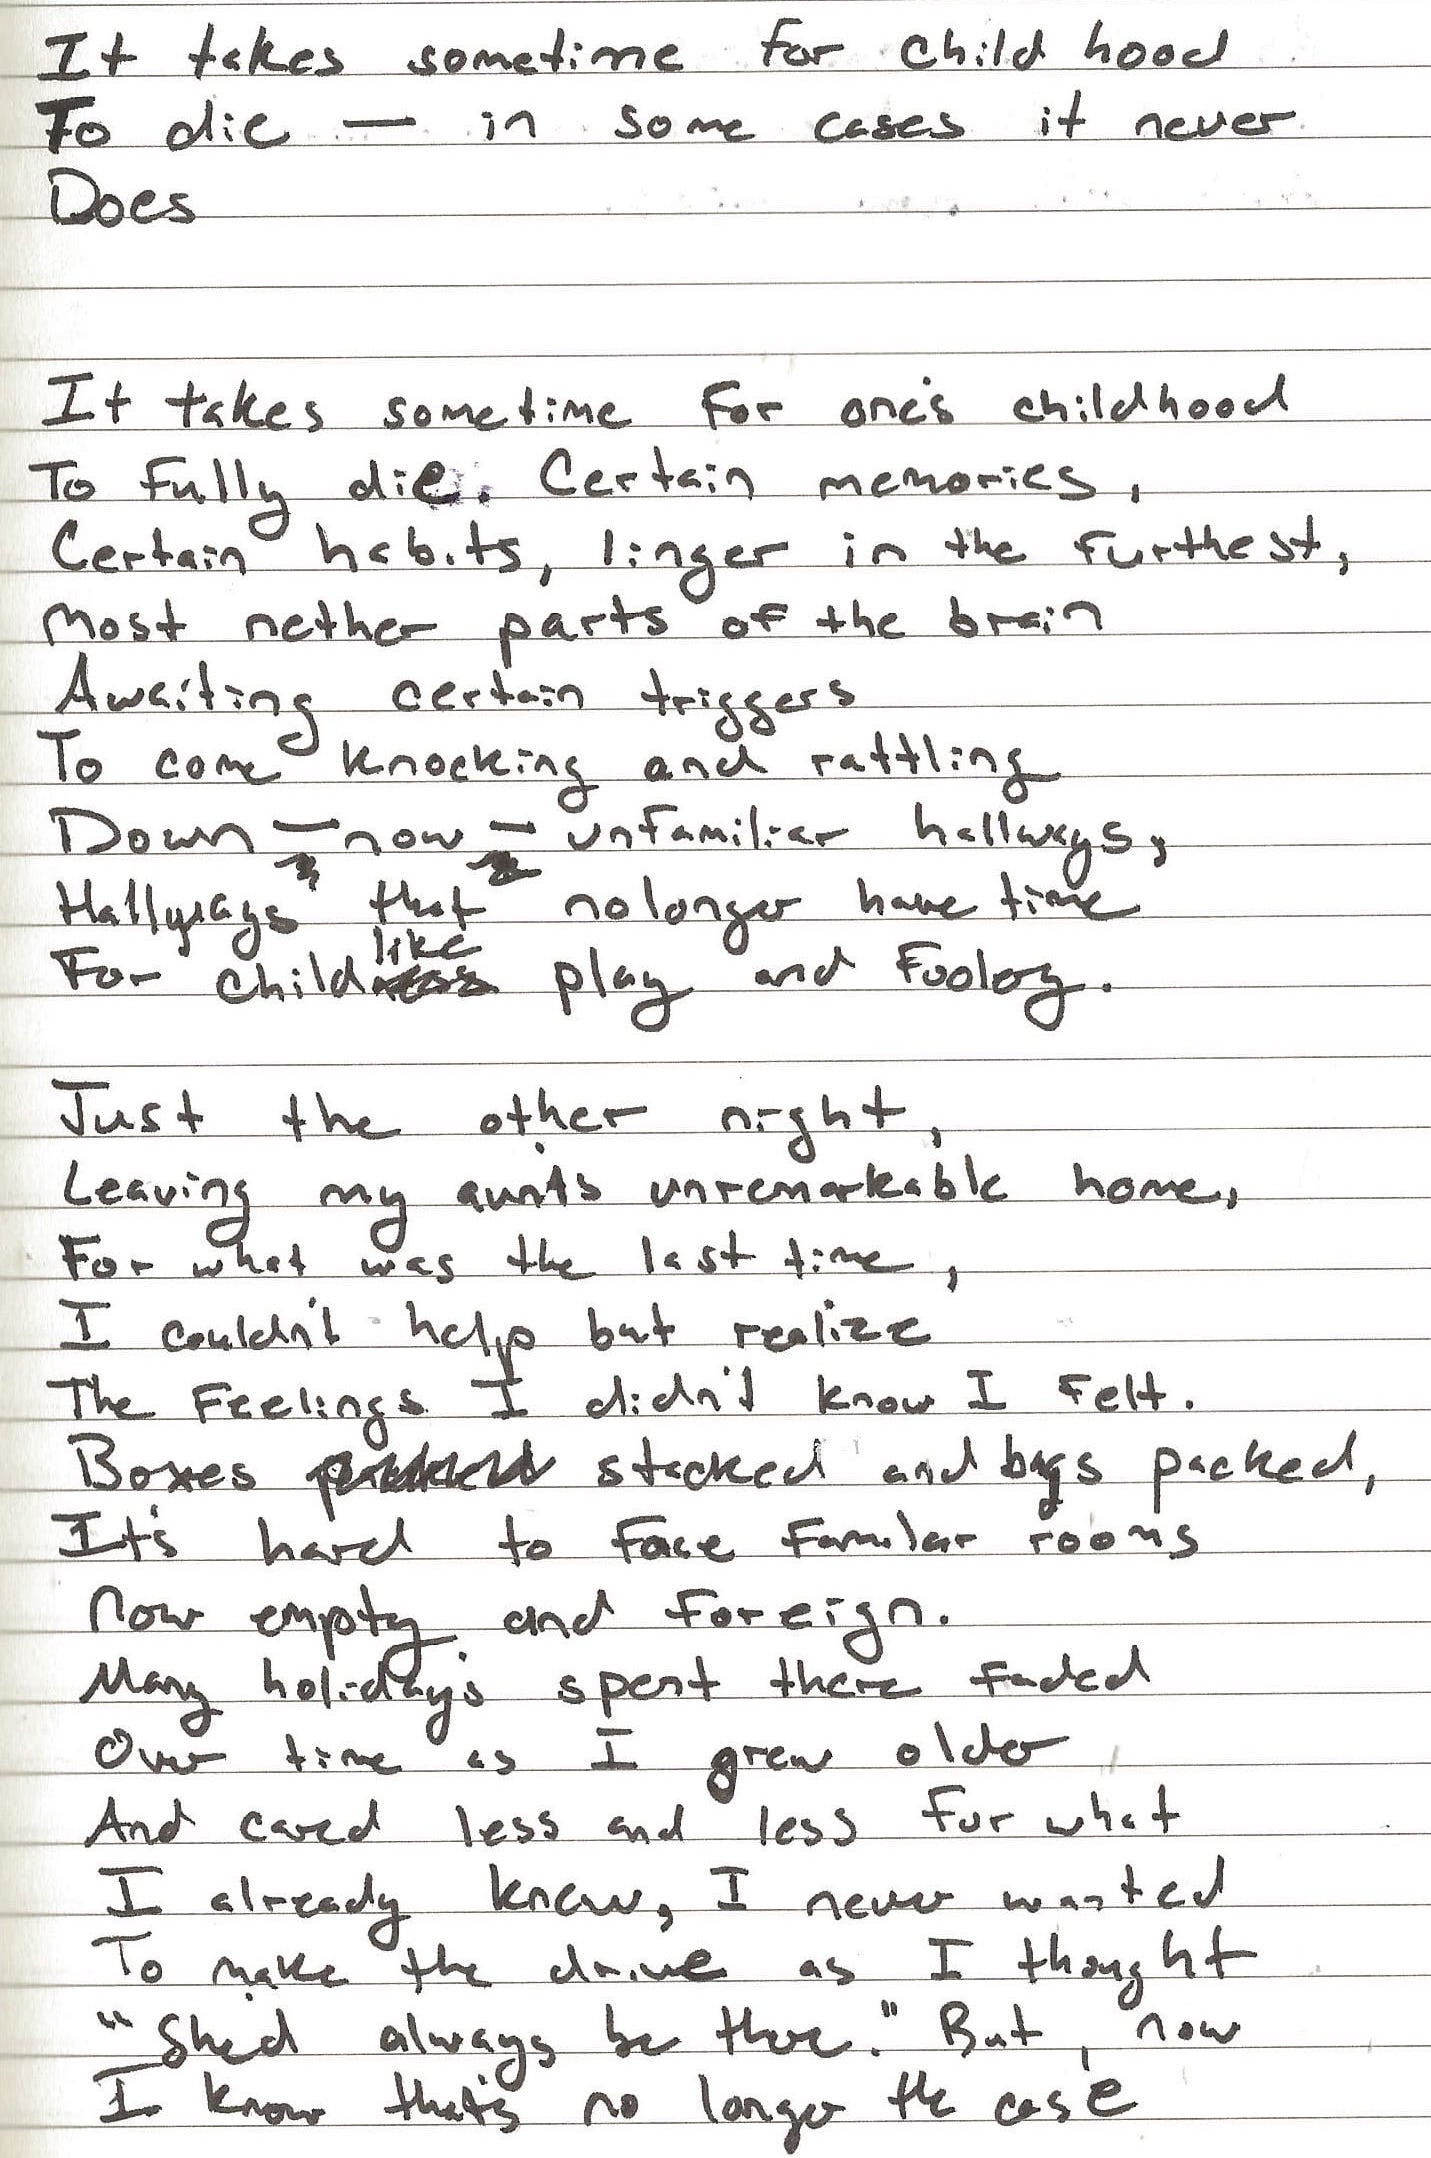 It takes sometime for child hood
To die — in some cases it never
Does
It takes sometime for one's childhood
To fully die. Certain memories,
Certain habits, linger in the furthest,
Most nether parts of the brain
Awaiting certain triggers
To come knocking and rattling
Down — now — unfamiliar hallways,
Hallways that no longer have time
For childlike play and foolog.
Just the other night,
Leaving my aunt's unremarkable home,
For what was the last time,
I couldn't help but realize
The feelings I didn't know I felt.
Boxes stacked and bags packed,
It's hard to face familar rooms
Now empty and foreign.
Many holiday's spent there faded
Over time as I grew older
And cared less and less for what
I already knew, I never wanted
To make the drive as I thought
"She'd always be there." But, now
I know that's no longer the case